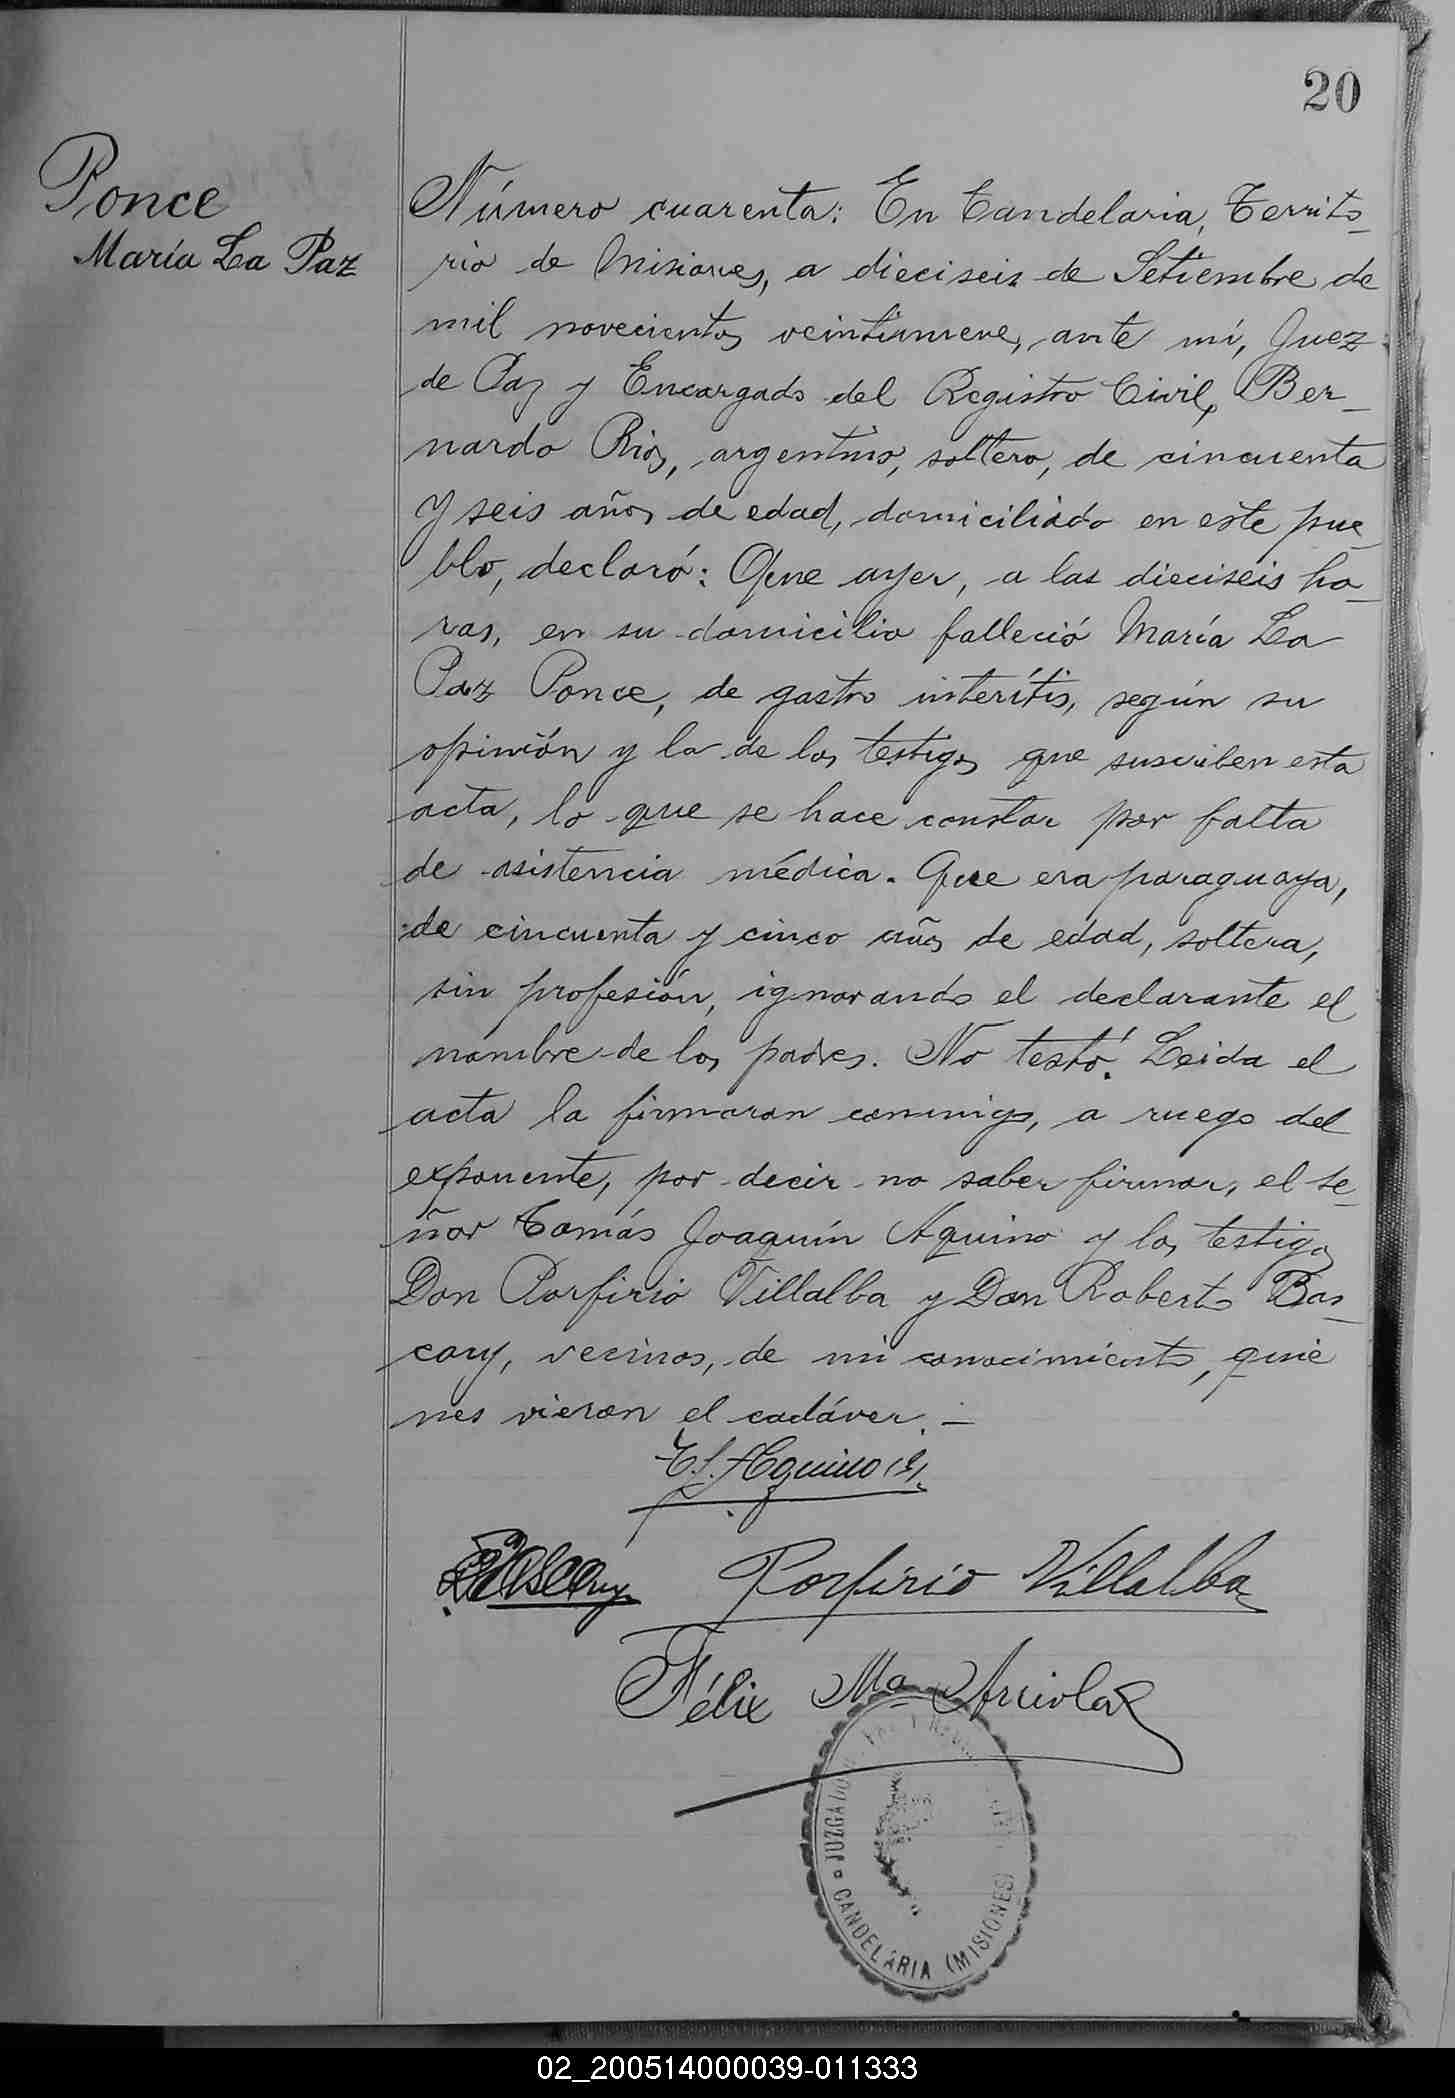 20
Ponce
María La Paz
Número cuarenta: En Candelaria, Territo_
rio de Misiones, a dieciseis de Setiembre de
mil novecientos veintinueve, ante mí, Juez
de Paz y Encargado del Registro Civil, Ber_
nardo Rios, argentino, soltero, de cincuenta
y seis años de edad, domiciliado en este pue_
blo, declaró: Que ayer, a las dieciseis ho_
ras, en su domicilio falleció María La
Paz Ponce, de gastro interítis, según su
opinión y la de los testigos que suscriben esta
acta, lo que se hace constar por falta
de asistencia médica. Que era paraguaya,
de cincuenta y cinco años de edad, soltera,
sin profesión, ignorando el declarante el
nombre de los padres. No testó. Leida el
acta la firmaron conmigo, a ruego del
exponente, por decir no saber firmar, el se_
ñor Tomás Joaquín Aquino y los testigos
Don Porfirio Villalba y Don Roberto Bas_
cary, vecinos, de mi conocimiento, quie
nes vieron el cadáver. —
T. J. Aquino (h)
Bascary Porfirio Villalba
Félix Ma
JUZGADO DE PAZ Y
CANDELARIA (MISIONES)
02_200514000039-011333